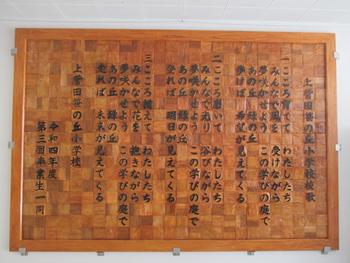 上菅田笹の丘小学校校歌
一 こころ育てて わたしたち
みんなで風を 受けながら
夢咲かせよう この学びの庭で
あの丘 緑の丘
歩けば 希望が見えてくる
二 こころ磨いて わたしたち
みんなで光り 浴びながら
夢咲かせよう この学びの庭で
あの丘 緑の丘
登れば 明日が見えてくる
三 こころ鍛えて わたしたち
みんなで花を 抱きながら
夢咲かせよう この学びの庭で
あの丘 緑の丘
走れば 未来が見えてくる
上菅田笹の丘小学校
令和四年度
第三回卒業生一同